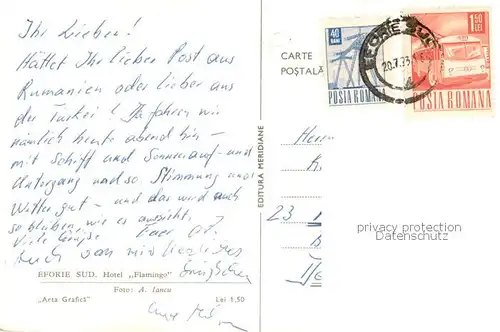 Ihr Lieben!
Hättet Ihr lieber Post aus
Rumänien oder lieber aus
der Türkei? Da fahren wir
nämlich heute abend hin –
mit Schiff und Sonnenauf- und
Untergang und so. Stimmung und
Wetter gut – und das wird auch
so bleiben, wie es aussieht.
Viele Grüße, Euer
Auch von mir herzliche
EFORIE SUD. Hotel „Flamingo"
Foto: A. Iancu
„Arta Grafică" Lei 1,50
EDITURA MERIDIANE
CARTE
POŞTALĂ
40
BANI
POSTA ROMANA
1.50
LEI
POSTA ROMANA
EFORIE SUD
20.7.73
Herrn
23
privacy protection
variety